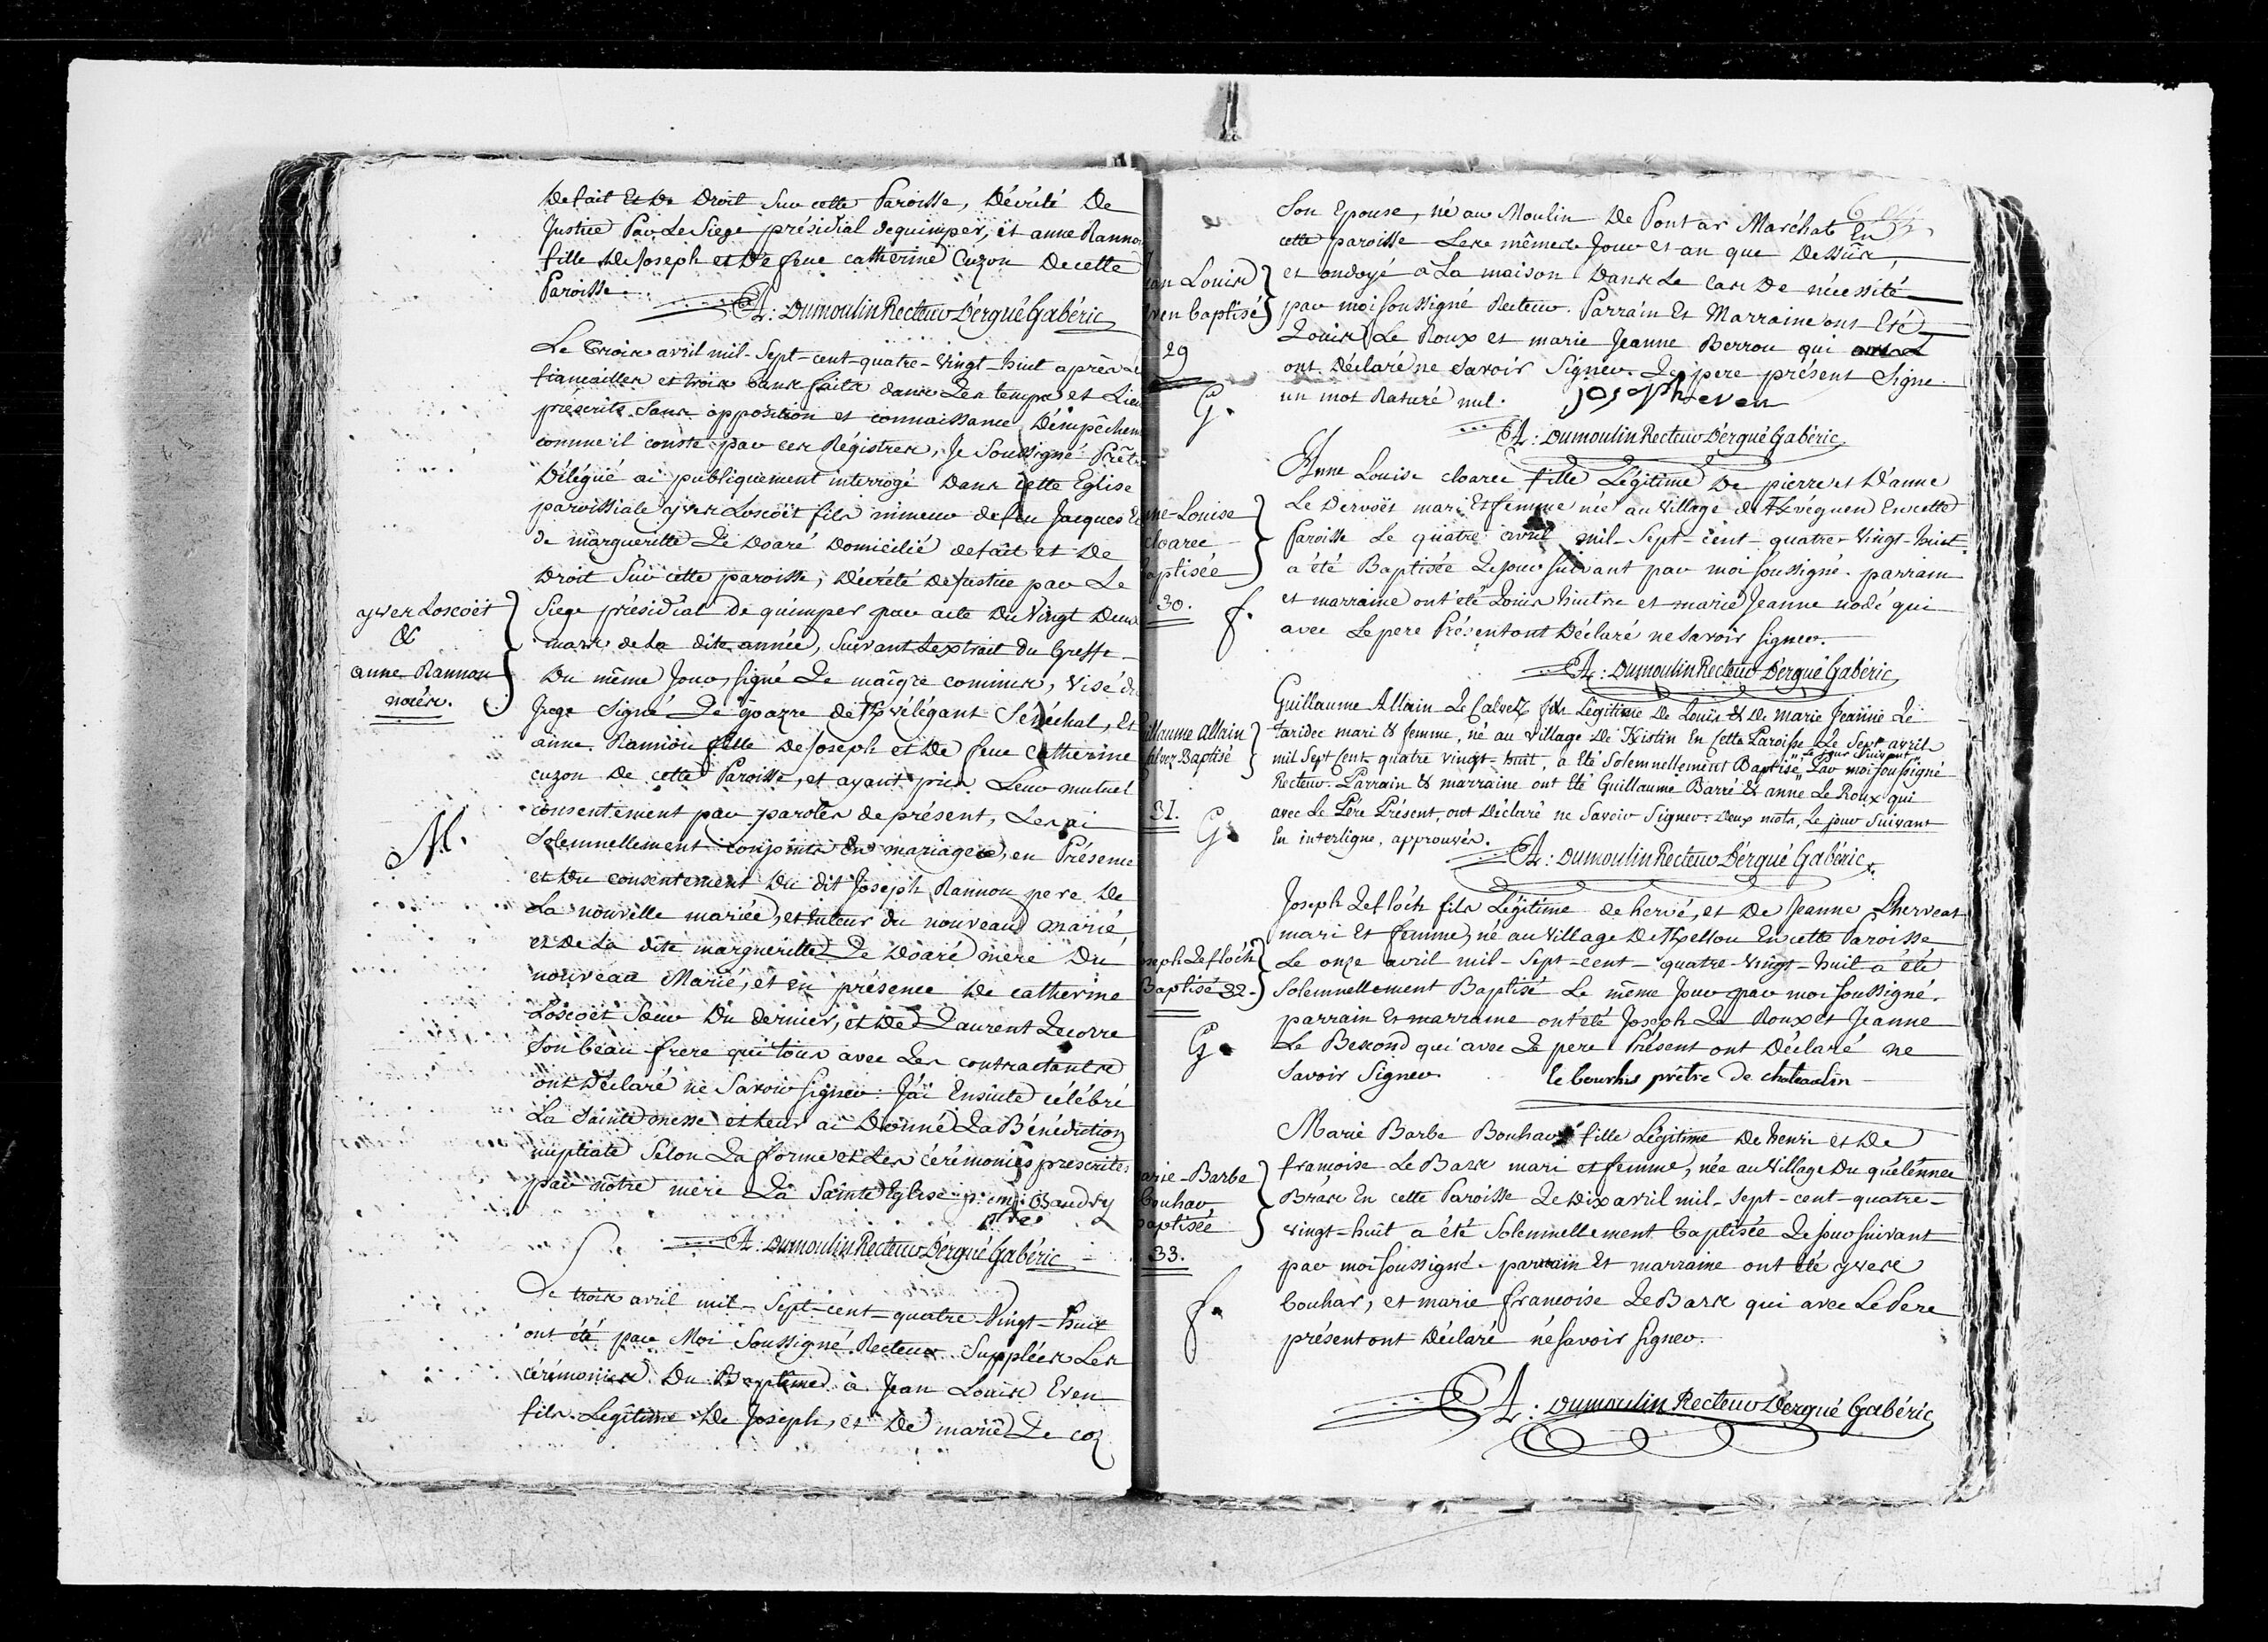 De fait Et De Droit Sur cette Paroisse, Décrété De
Justice Par Le Siege présidial de quimper, et anne Rannou
fille De Joseph et De feue catherine Cuzon De cette
Paroisse.
A: Dumoulin Recteur D'ergué Gabéric
Le Trois avril mil-Sept-cent-quatre-Vingt-huit après
fiancailles et trois bans faits dans Les temps et Lieu
préscrits Sans opposition et connaissance D'émpêchem
comme il conste par ces Régistres, Je Soussigné Prêtre
Délégué ai publiquement interrogé Dans cette Eglise
paroissiale yves Loscoët fils mineur de feu Jacques Et
de marguerite Le Doaré Domicilié de fait et De
Droit Sur cette paroisse, Décrété De Justice par Le
Siege présidial de quimper par acte Du Vingt Deux
mars de La dite année, Suivant L'extrait du Greffe
Du même Jour, Signé Le maigre commis, Visé du
Juge Signé Le goazre de Kvélégant Sénéchal, Et
anne Rannou fille De Joseph et De feue Catherine
cuzon De cette Paroisse, et ayant pris Leur mutuel
consentement par paroles de présent, Les ai
Solemnellement conjoints En mariage, en Présence
et Du consentement Du dit Joseph Rannou pere De
La nouvelle mariée, et tuteur du nouveau marié,
et De La dite marguerite Le Doaré mere Du
nouveau Marié, et en présence De catherine
Loscoët Sœur Du dernier, et De Laurent Le corre
Son beau frere qui tous avec Les contractants
ont Déclaré ne Savoir Signer. J'ai Ensuite célébré
La Sainte messe et Leur ai Donné La Bénédiction
nuptiale Selon La forme et Les cérémonies prescrites
par nôtre mere La Sainte Eglise. Baudry
ptre
A: Dumoulin Recteur D'ergué Gabéric
Le trois avril mil-Sept-cent-quatre-Vingt-huit
ont été par Moi Soussigné Recteur Suppléés Les
cérémonies Du Baptême à Jean Louis Even
fils Légitime De Joseph, et De marie Le coz
yves Loscoët
&
anne Rannou
noces.
M.
Son Epouse, né au Moulin De Pont ar Maréchal En
cette paroisse Les même Jour et an que Dessus,
et ondoyé à La maison Dans Le Cas De nécessité
par moi Soussigné Recteur. Parrain Et Marraine ont Eté
Louis Le Roux et marie Jeanne Berrou qui
ont Déclaré ne Savoir Signer. Le pere présent Signe
un mot Raturé nul. joseph even
A: Dumoulin Recteur D'ergué Gabéric
an Louis
ven baptisé
29
G.
Anne Louise cloarec fille Légitime De pierre et D'anne
Le Dervoët mari Et femme née au Village de Kvéguen En cette
Paroisse Le quatre avril mil-Sept-cent-quatre-Vingt-huit
a été Baptisée Le jour Suivant par moi Soussigné. parrain
et marraine ont été Louis huitre et marie Jeanne nodé qui
avec Le pere Présent ont Déclaré ne Savoir Signer.
A: Dumoulin Recteur D'ergué Gabéric
ne-Louise
cloarec
aptisée
30.
f.
Guillaume Allain Le Calvez fils Légitime De Louis & De Marie Jeanne Le
Taridec mari & femme, né au Village De Kistin En Cette Paroisse Le Sept avril
mil Sept Cent quatre vingt-huit, a Eté Solemnellement Baptisé " Le jour Suivant " Par moi Soussigné
Recteur. Parrain & marraine ont Eté Guillaume Barré & anne Le Roux qui
avec Le Pére Présent, ont Déclaré ne Savoir Signer. Deux mots, Le jour Suivant
En interligne, approuvés.
A: Dumoulin Recteur D'ergué Gabéric
illaume Allain
alvez Baptisé
31.
G.
Joseph Le flóch fils Légitime de hervé, et De Jeanne Lhervéat
mari Et femme, né au Village De Kpellou En cette Paroisse
Le onze avril mil-Sept-cent-quatre-Vingt-huit a été
Solemnellement Baptisé Le même Jour par moi Soussigné.
parrain Et marraine ont été Joseph Le Roux et Jeanne
Le Bescond qui avec Le pere Présent ont Déclaré ne
Savoir Signer. le bourhis prêtre de chateaulin
seph Le flóch
Baptisé 32.
G.
Marie Barbe Bouhar fille Légitime De henri et De
francoise Le Bars mari et femme, née au Village Du quélennec
Bras En cette Paroisse Le Dix avril mil-Sept-cent-quatre-
vingt-huit a été Solemnellement baptisée Le jour Suivant
par moi Soussigné. parrain Et marraine ont été yves
bouhar, et marie francoise Le Bars qui avec Le Pere
présent ont Déclaré ne Savoir Signer.
A: Dumoulin Recteur D'ergué Gabéric
arie-Barbe
bouhar,
baptisée
33.
f.